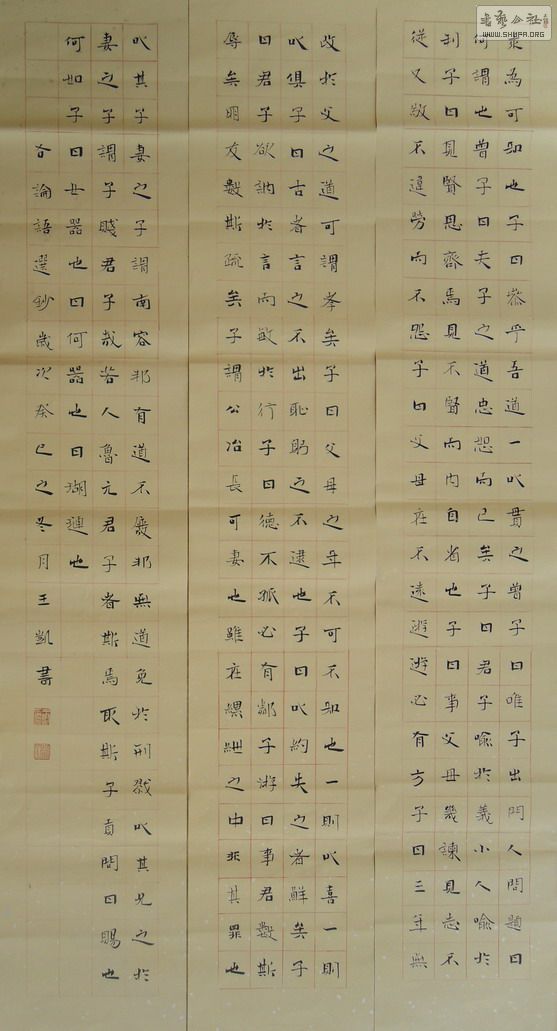 求為可知也子曰參乎吾道一以貫之曾子曰唯子出門人問題曰
何謂也曾子曰夫子之道忠恕而已矣子曰君子喻於義小人喻於
利子曰見賢思齊焉見不賢而內自省也子曰事父母幾諫見志不
從又敬不違勞而不怨子曰父母在不遠遊遊必有方子曰三年無
改於父之道可謂孝矣子曰父母之年不可不知也一則以喜一則
以懼子曰古者言之不出恥躬之不逮也子曰以約失之者鮮矣子
曰君子欲訥於言而敏於行子曰德不孤必有鄰子游曰事君數斯
辱矣朋友數斯疏矣子謂公冶長可妻也雖在縲紲之中非其罪也
以其子妻之子謂南容邦有道不廢邦無道免於刑戮以其兄之於
妻之子謂子賤君子哉若人魯无君子者斯焉取斯子貢問曰賜也
何如子曰女器也曰何器也曰瑚璉也
右論語選鈔歲次癸巳之冬月王凱書
書藝公社
WWW.SHUFA.ORG